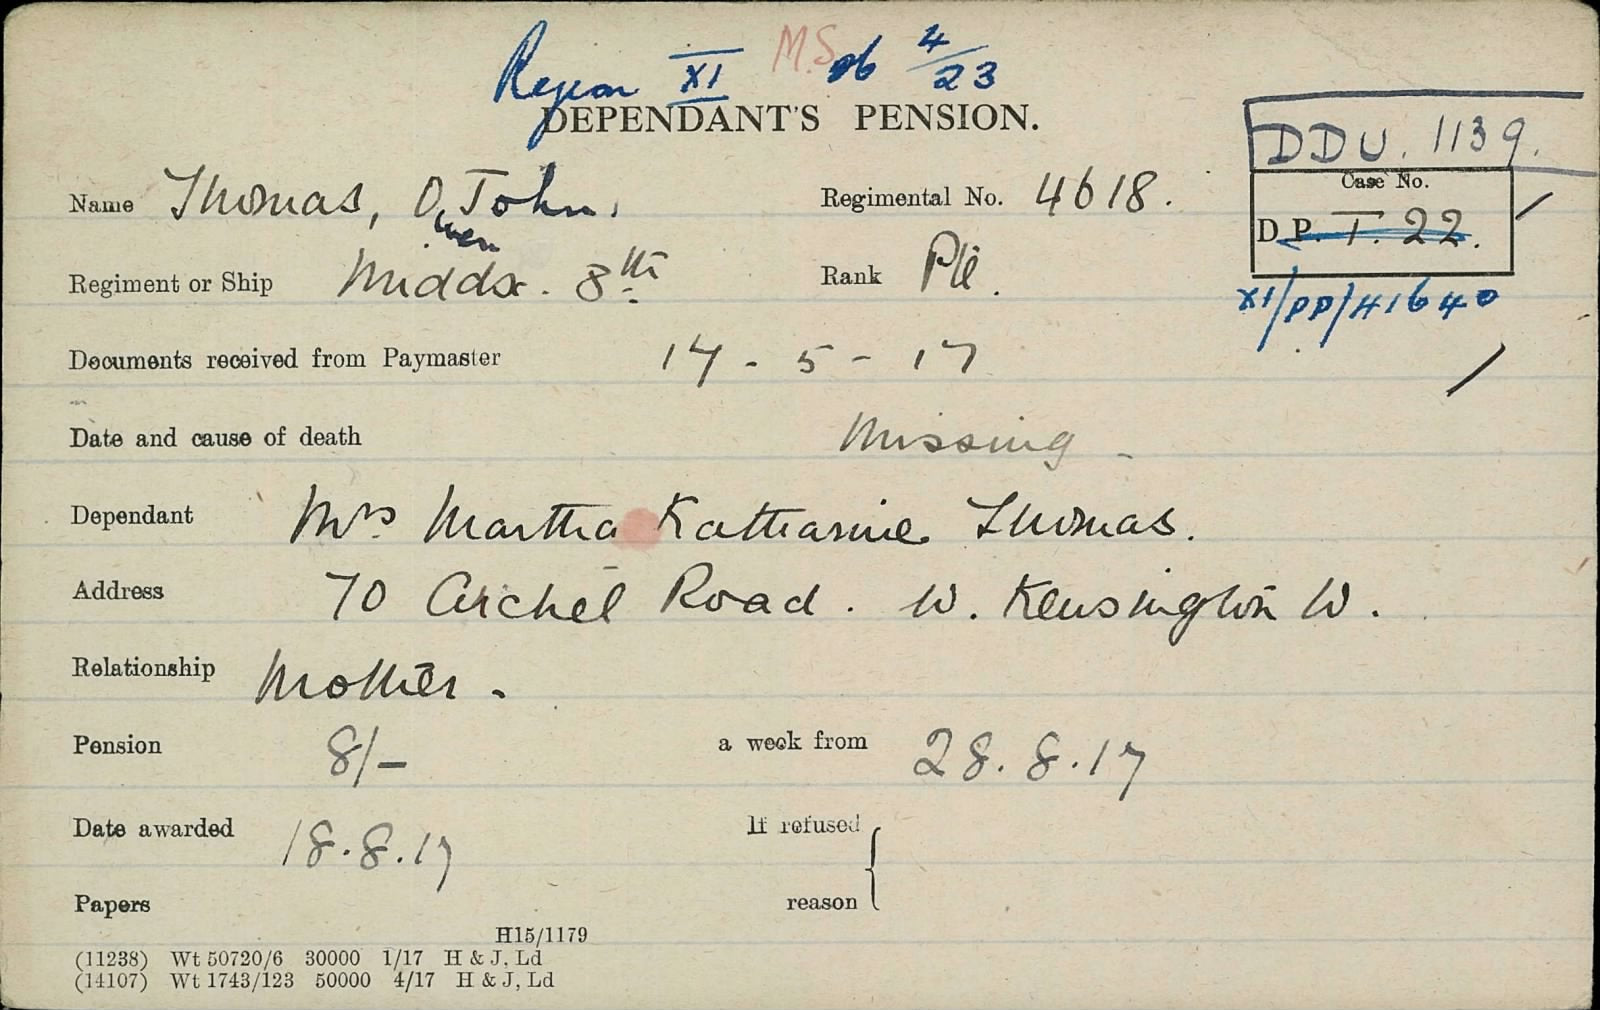 Region XI M.S. ob 4/23
DEPENDANT'S PENSION.
DDU. 1139.
Case No.
D.P. T. 22.
XI/PP/41640
Name Thomas, Owen John. Regimental No. 4618.
Regiment or Ship Middx. 8th Rank Pte.
Documents received from Paymaster 14-5-17
Date and cause of death Missing -
Dependant Mrs Martha Katharine Thomas.
Address 70 Archel Road. W. Kensington W.
Relationship Mother.
Pension 8/- a week from 28.8.17
Date awarded 18.8.17 If refused
Papers reason
H15/1179
(11238) Wt 50720/6 30000 1/17 H & J, Ld
(14107) Wt 1743/123 50000 4/17 H & J, Ld